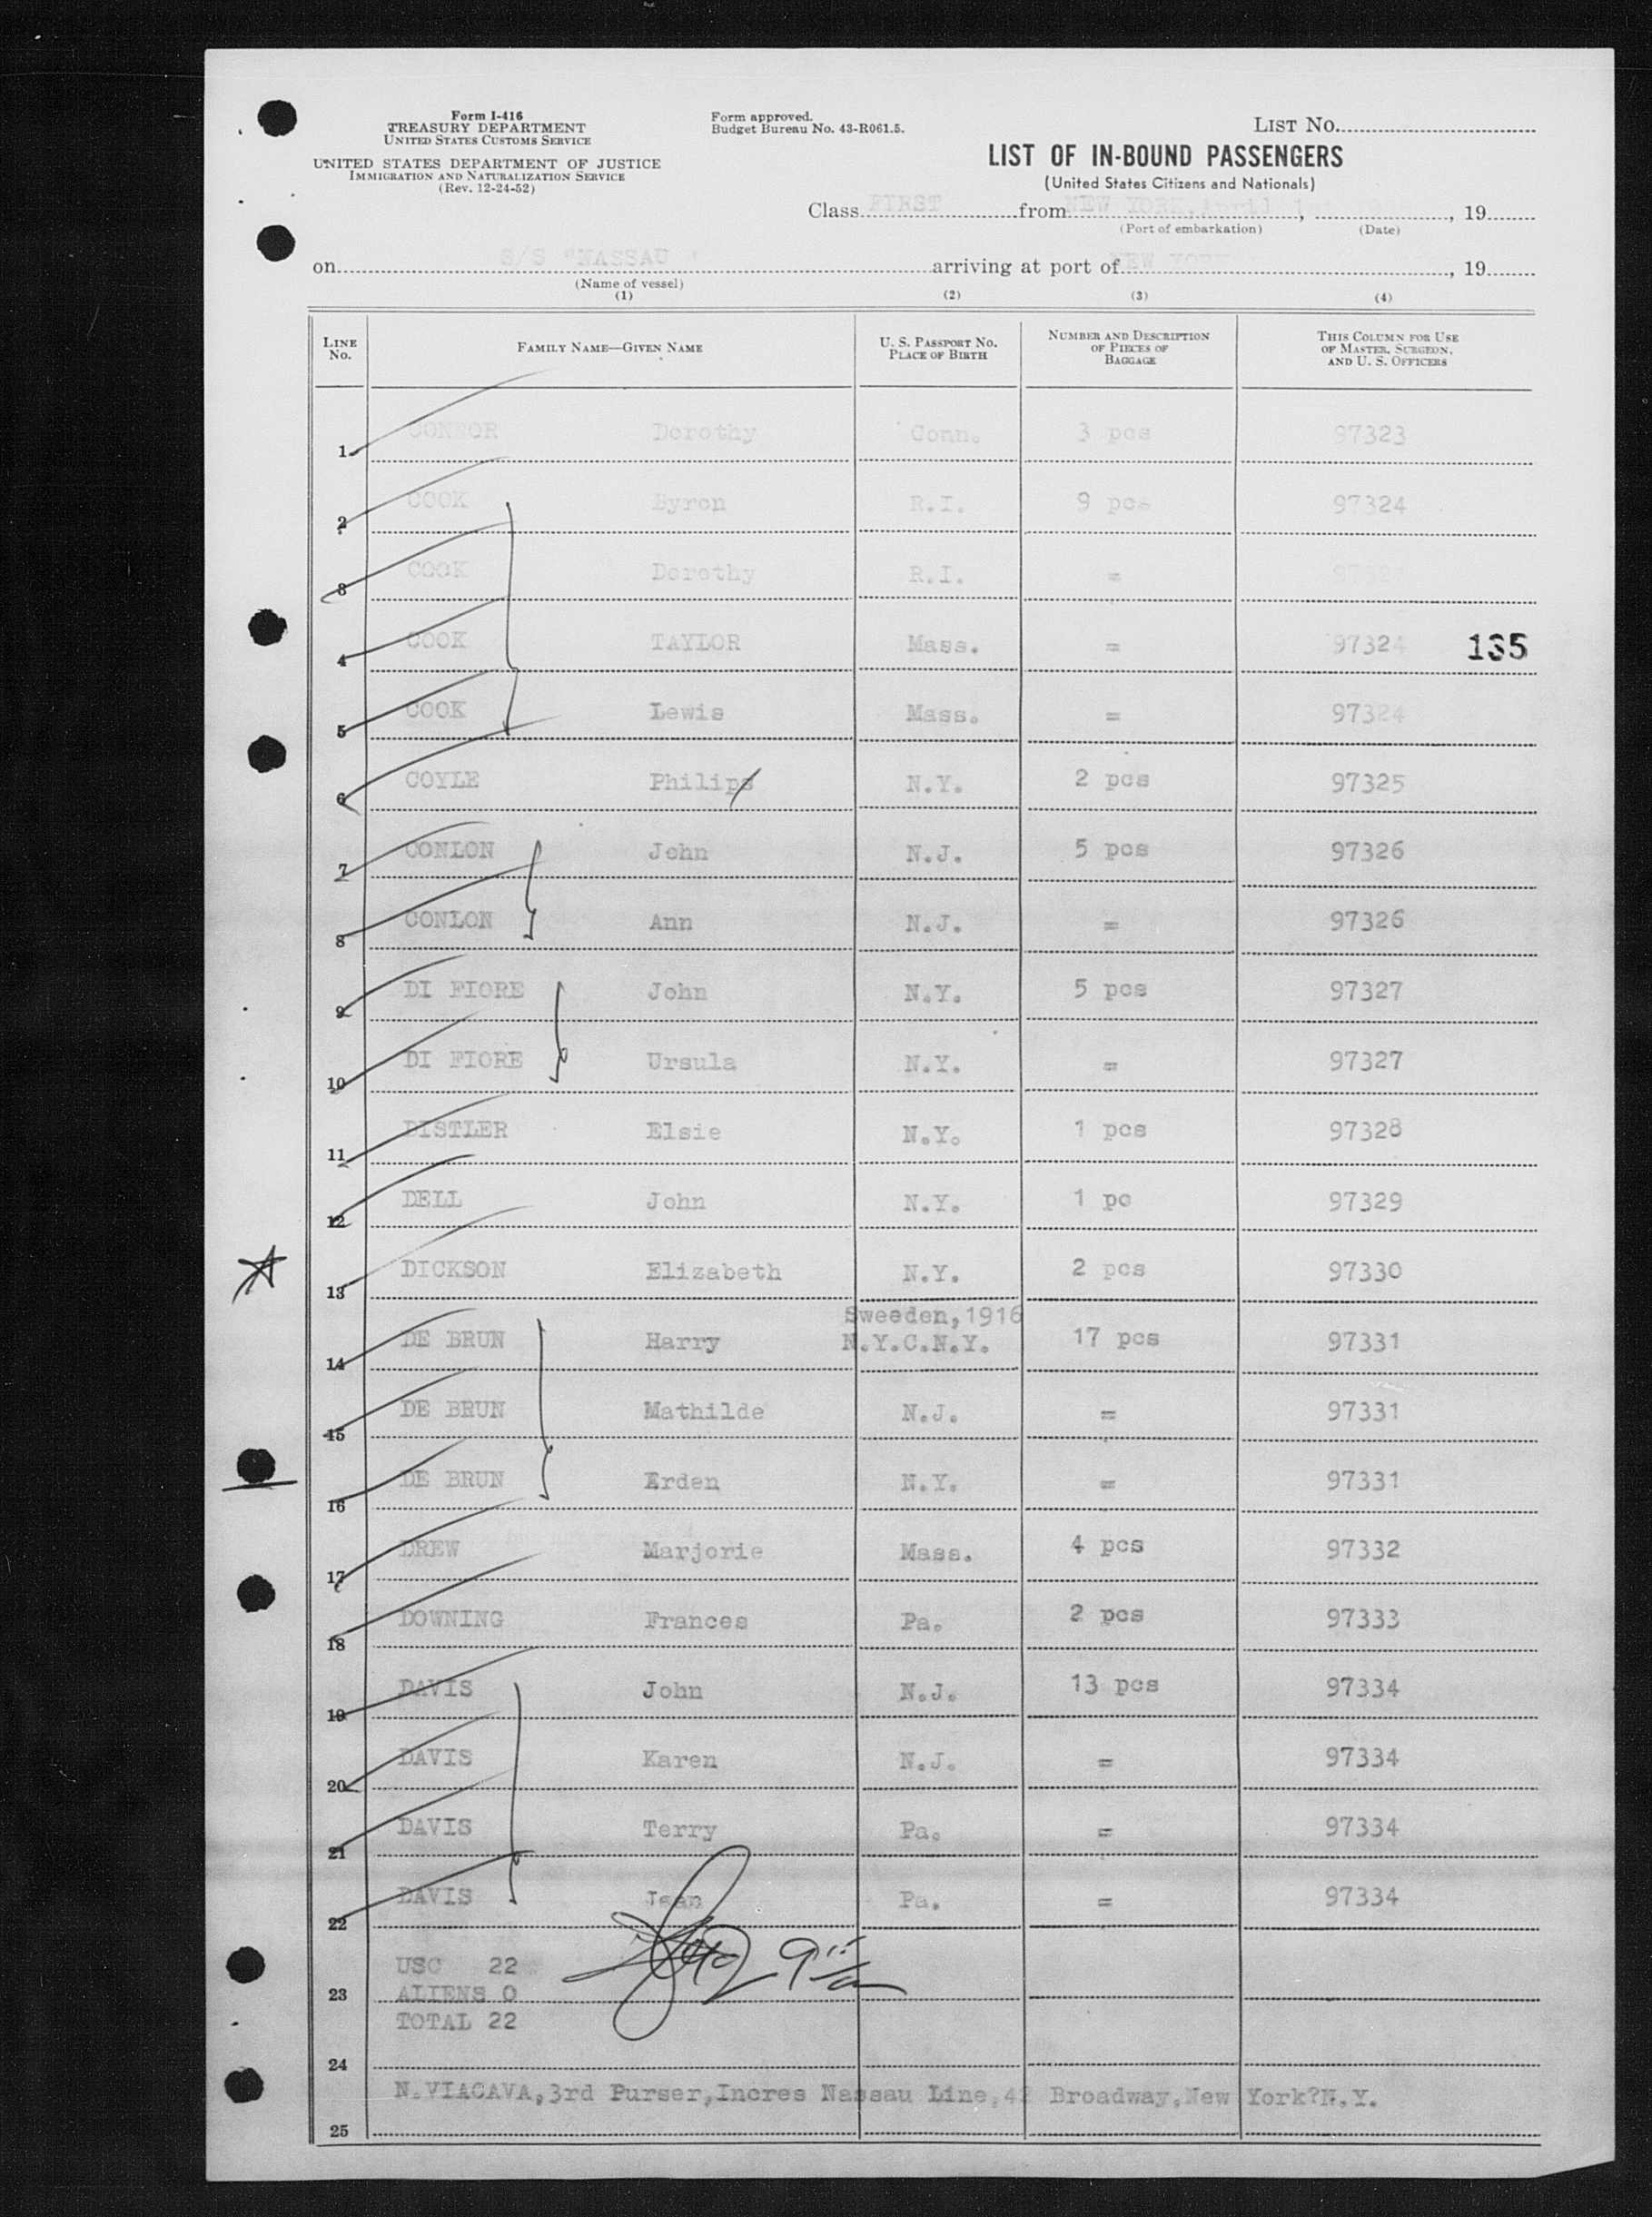 Form I-416
TREASURY DEPARTMENT
UNITED STATES CUSTOMS SERVICE
UNITED STATES DEPARTMENT OF JUSTICE
IMMIGRATION AND NATURALIZATION SERVICE
(Rev. 12-24-52)
Form approved.
Budget Bureau No. 43-R061.5.
LIST No.
LIST OF IN-BOUND PASSENGERS
(United States Citizens and Nationals)
Class FIRST from NEW YORK, April , 19
(Port of embarkation) (Date)
on S/S "NASSAU " arriving at port of NEW YORK , 19
(Name of vessel)
(1) (2) (3) (4)
LINE No. FAMILY NAME—GIVEN NAME U. S. PASSPORT NO. PLACE OF BIRTH NUMBER AND DESCRIPTION OF PIECES OF BAGGAGE THIS COLUMN FOR USE OF MASTER, SURGEON, AND U. S. OFFICERS
1 CONNOR Dorothy Conn. 3 pcs 97323
2 COOK Byron R.I. 9 pcs 97324
3 COOK Dorothy R.I. =
4 COOK TAYLOR Mass. = 97324 135
5 COOK Lewis Mass. = 97324
6 COYLE Philips N.Y. 2 pcs 97325
7 CONLON John N.J. 5 pcs 97326
8 CONLON Ann N.J. = 97326
9 DI FIORE John N.Y. 5 pcs 97327
10 DI FIORE Ursula N.Y. = 97327
11 DISTLER Elsie N.Y. 1 pcs 97328
12 DELL John N.Y. 1 pc 97329
13 DICKSON Elizabeth N.Y. 2 pcs 97330
Sweeden,1916
14 DE BRUN Harry N.Y.C.N.Y. 17 pcs 97331
15 DE BRUN Mathilde N.J. = 97331
16 DE BRUN Erden N.Y. = 97331
17 DREW Marjorie Mass. 4 pcs 97332
18 DOWNING Frances Pa. 2 pcs 97333
19 DAVIS John N.J. 13 pcs 97334
20 DAVIS Karen N.J. = 97334
21 DAVIS Terry Pa. = 97334
22 DAVIS Jean Pa. = 97334
USC 22
23 ALIENS 0
TOTAL 22
24
N.VIACAVA,3rd Purser,Incres Nassau Line,42 Broadway,New York?N.Y.
25